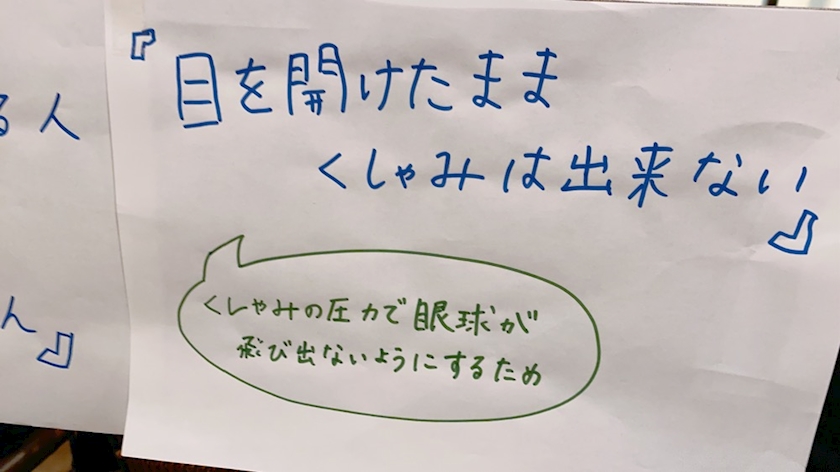 る人
ん』
『目を開けたまま
くしゃみは出来ない』
くしゃみの圧力で眼球が
飛び出ないようにするため